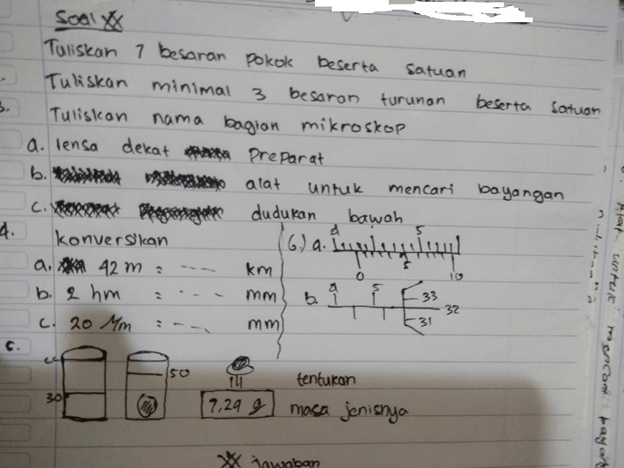 Soal
Tuliskan 7 besaran pokok beserta satuan
Tuliskan minimal 3 besaran turunan beserta satuan
3. Tuliskan nama bagian mikroskop
a. lensa dekat preparat
b. alat untuk mencari bayangan
c. dudukan bawah
4. konversikan
a. 42 m = ---- km
b. 2 hm = ---- mm
c. 20 Mm = ---- mm
6.) a. 5
0 10
b. 5
33
32
31
50
30
7,29 g
tentukan
masa jenisnya
jawaban